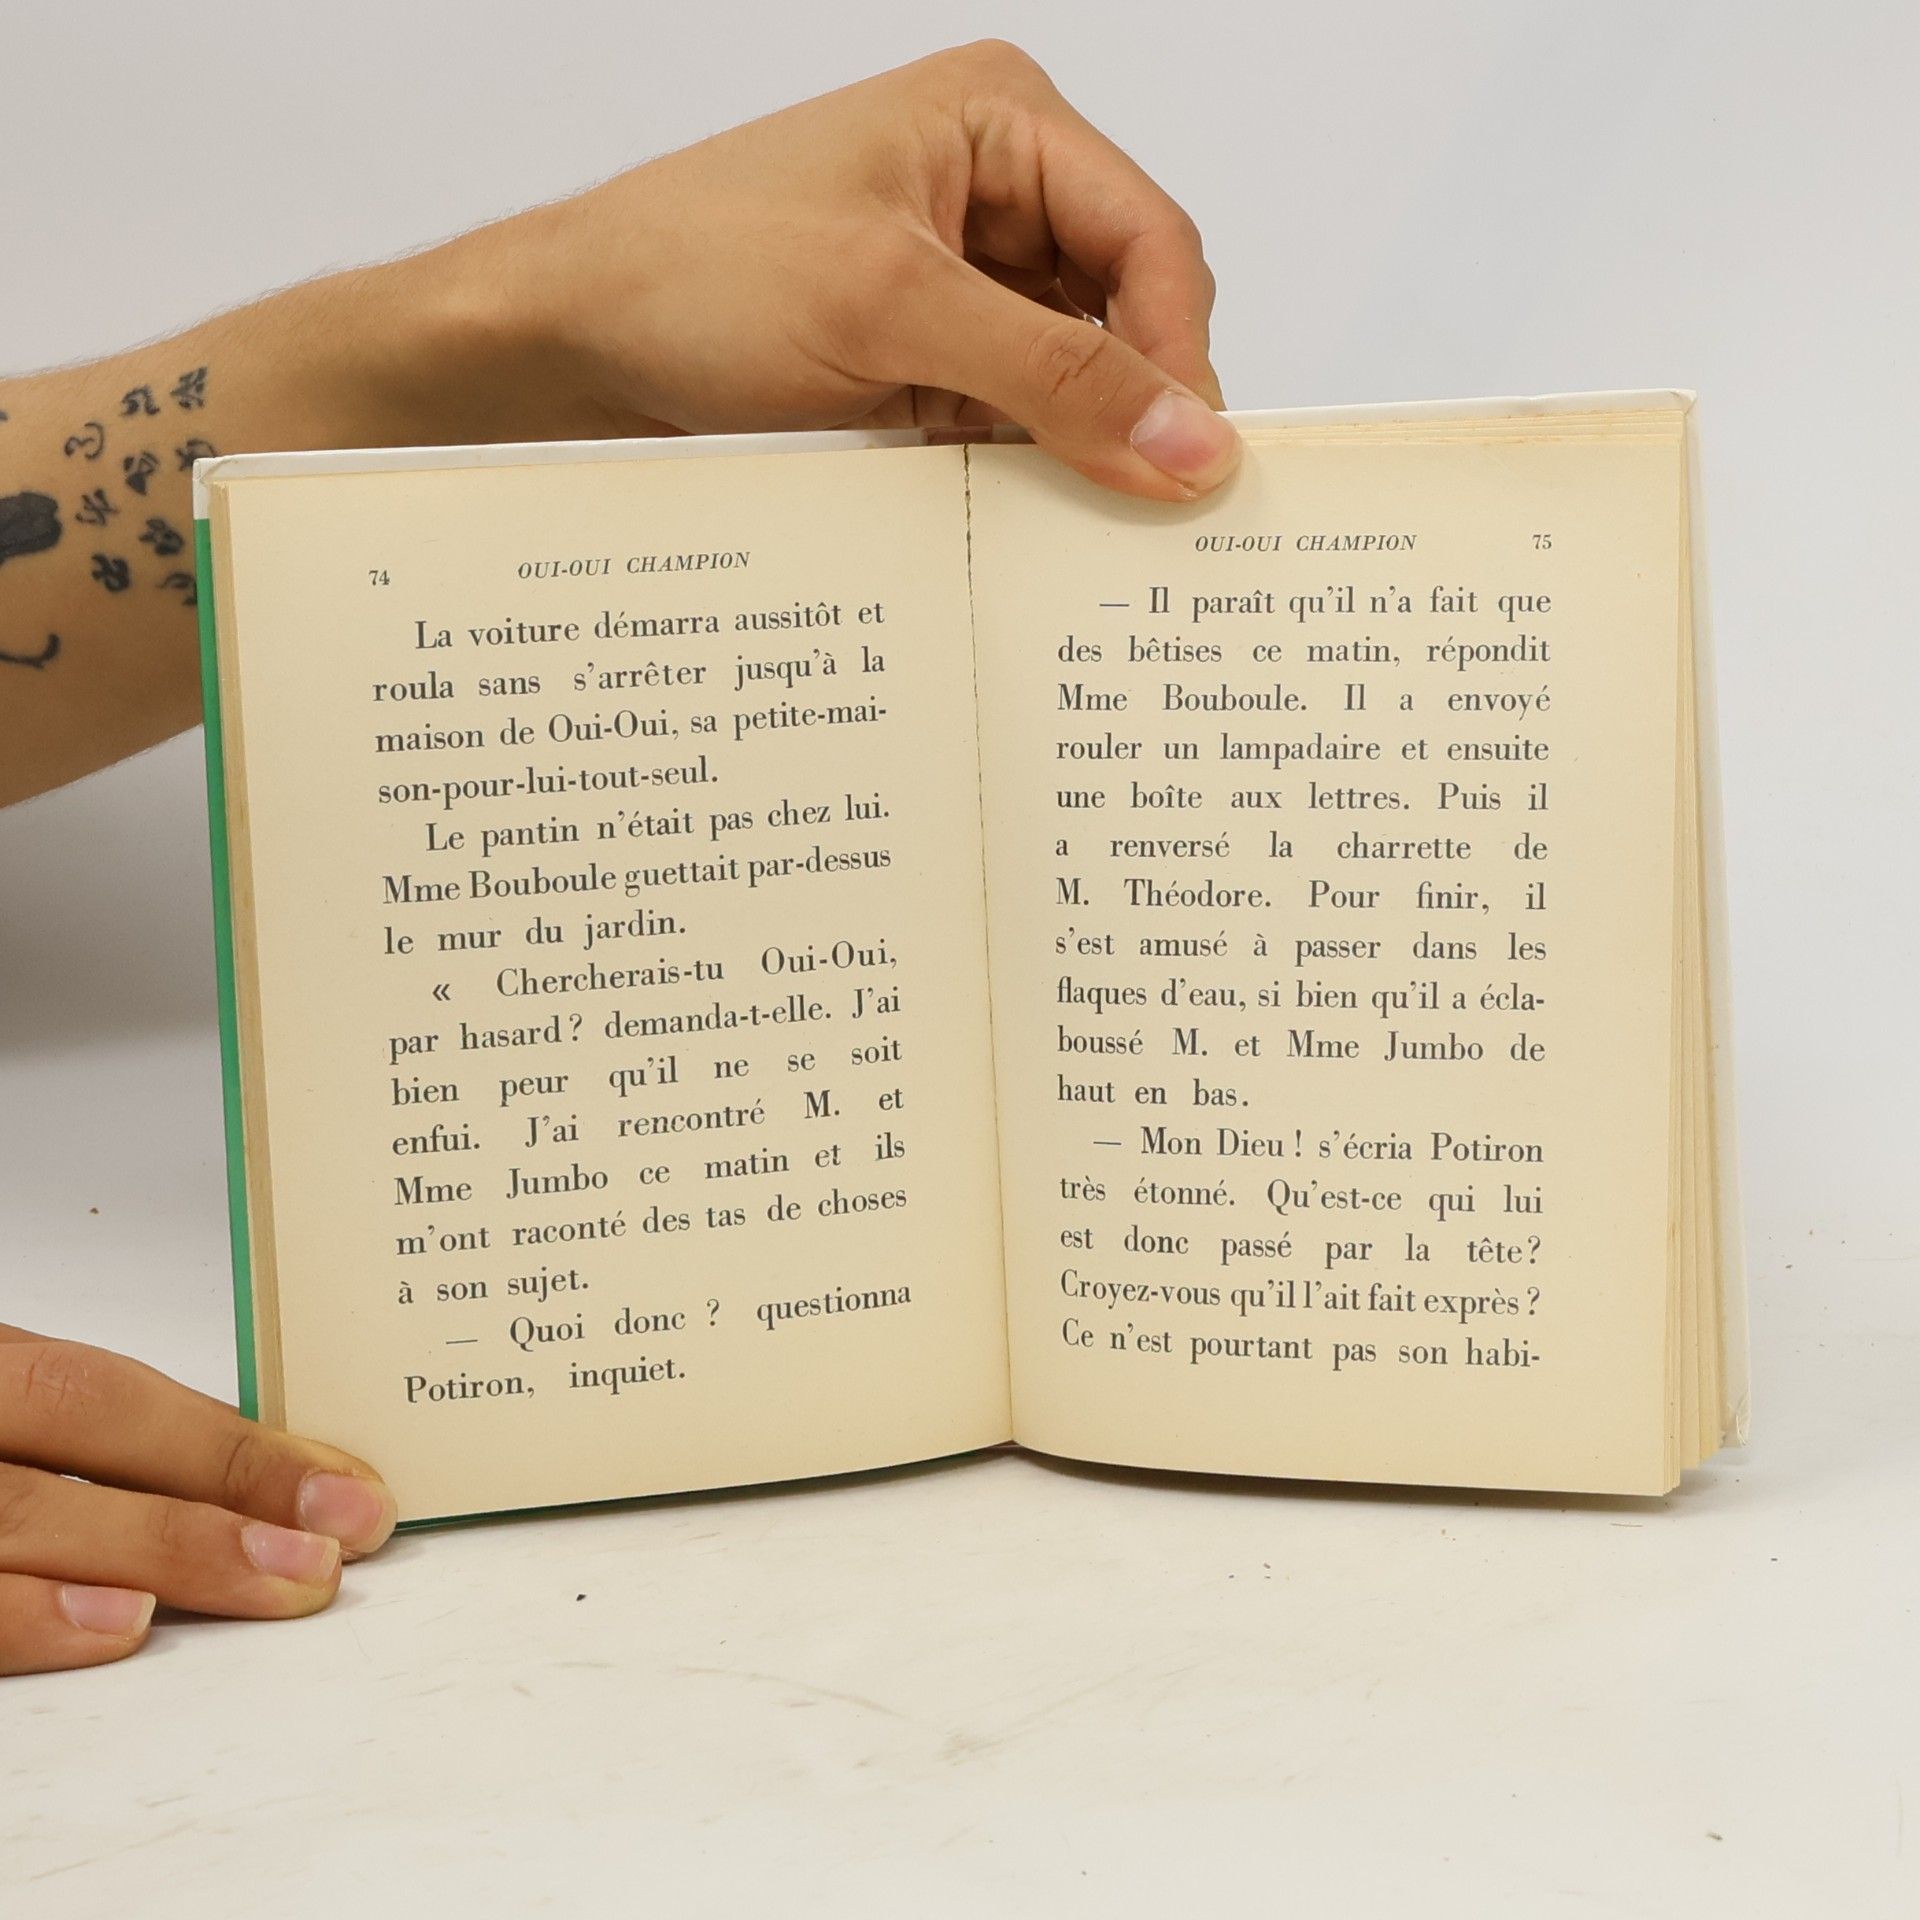 74
OUI-OUI CHAMPION
La voiture démarra aussitôt et
roula sans s'arrêter jusqu'à la
maison de Oui-Oui, sa petite-mai-
son-pour-lui-tout-seul.
Le pantin n'était pas chez lui.
Mme Bouboule guettait par-dessus
le mur du jardin.
« Chercherais-tu Oui-Oui,
par hasard ? demanda-t-elle. J'ai
bien peur qu'il ne se soit
enfui. J'ai rencontré M. et
Mme Jumbo ce matin et ils
m'ont raconté des tas de choses
à son sujet.
— Quoi donc ? questionna
Potiron, inquiet.
OUI-OUI CHAMPION
75
— Il paraît qu'il n'a fait que
des bêtises ce matin, répondit
Mme Bouboule. Il a envoyé
rouler un lampadaire et ensuite
une boîte aux lettres. Puis il
a renversé la charrette de
M. Théodore. Pour finir, il
s'est amusé à passer dans les
flaques d'eau, si bien qu'il a écla-
boussé M. et Mme Jumbo de
haut en bas.
— Mon Dieu ! s'écria Potiron
très étonné. Qu'est-ce qui lui
est donc passé par la tête ?
Croyez-vous qu'il l'ait fait exprès ?
Ce n'est pourtant pas son habi-